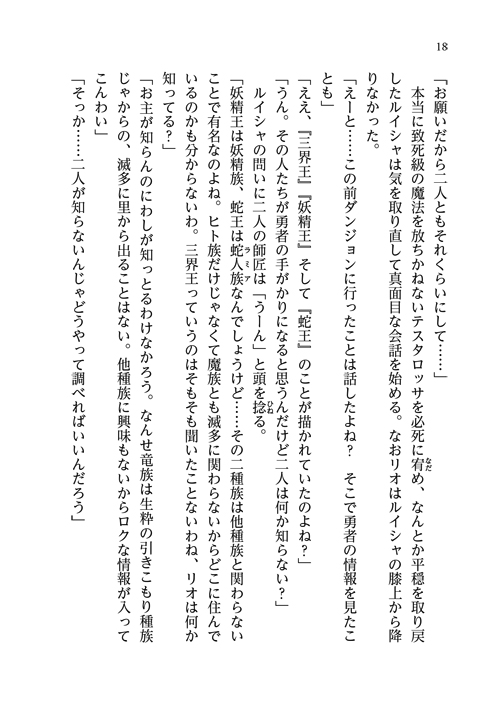 18
「お願いだから二人ともそれくらいにして……」
　本当に致死級の魔法を放ちかねないテスタロッサを必死に宥め、なんとか平穏を取り戻
したルイシャは気を取り直して真面目な会話を始める。なおリオはルイシャの膝上から降
りなかった。
「えーと……この前ダンジョンに行ったことは話したよね？　そこで勇者の情報を見たこ
とも」
「ええ、『三界王』『妖精王』そして『蛇王』のことが描かれていたのよね？」
「うん。その人たちが勇者の手がかりになると思うんだけど二人は何か知らない？」
　ルイシャの問いに二人の師匠は「うーん」と頭を捻る。
「妖精王は妖精族、蛇王は蛇人族なんでしょうけど……その二種族は他種族と関わらない
ことで有名なのよね。ヒト族だけじゃなくて魔族とも滅多に関わらないからどこに住んで
いるのかも分からないわ。三界王っていうのはそもそも聞いたことないわね、リオは何か
知ってる？」
「お主が知らんのにわしが知っとるわけなかろう。なんせ竜族は生粋の引きこもり種族
じゃからの、滅多に里から出ることはない。他種族に興味もないからロクな情報が入って
こんわい」
「そっか……二人が知らないんじゃどうやって調べればいいんだろう」